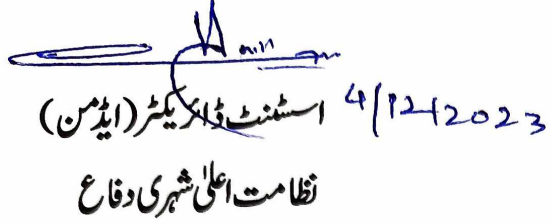 اسسٹنٹ ڈائریکٹر (ایڈمن) 4/12/2023
نظامت اعلیٰ شہری دفاع